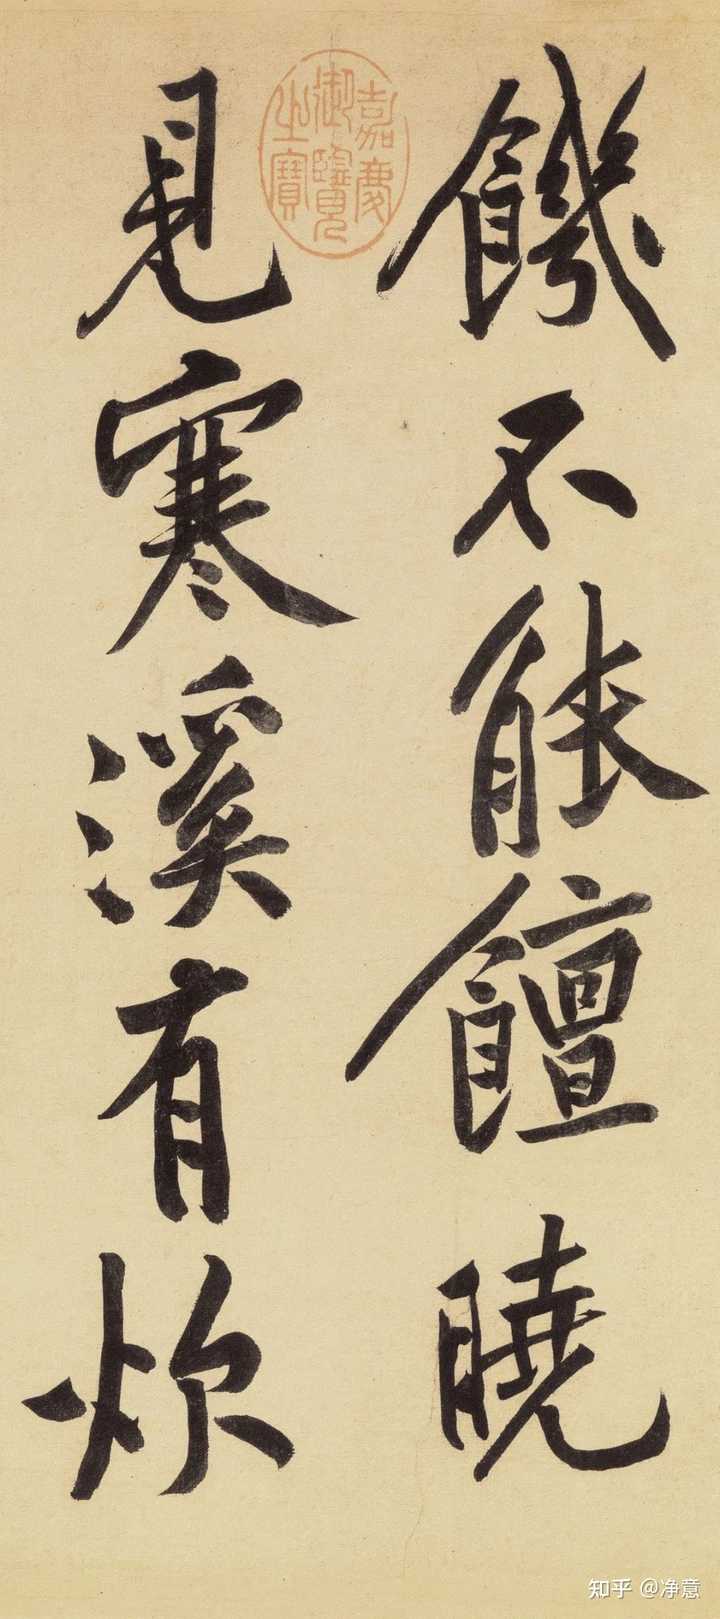 饑不能饘曉
見寒溪有炊
嘉慶
御覽
之寶
知乎 @净意